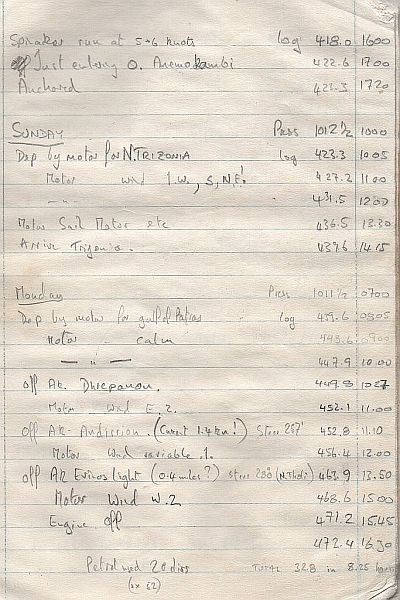 Spinaker run at 5-6 knots log 418.0 1600
Just entering O. Anemokambi 422.6 1700
Anchored 423.3 1720
SUNDAY Press 1012½ 1000
Dep by motor for N. TRIZONIA log 423.3 1005
Motor wind 1.W., S, N.E! 427.2 1100
-"- 431.5 1200
Motor Sail Motor etc 436.5 13.30
Arrive Trizonia. 439.6 1415
Monday Press 1011½ 0700
Dep by motor for gulf of Patras log 439.6 0805
Motor - calm 443.6 0900
— " — 447.9 10.00
Off Ak. Dhrepanon. 449.8 1027
Motor Wind E.2. 452.1 11.00
Off Ak. Andirrion. (Current 1.4 kn!) Steer 257° 452.8 11.10
Motor Wind variable 1. 456.4 12.00
Off AK Evinos light (0.4 miles?) Steer 280 463.9 13.50
Motor Wind W.2 468.6 15.00
Engine Off 471.2 15.45
472.4 16.30
Petrol used 20 TOTAL 32.8 in 8.25 hours